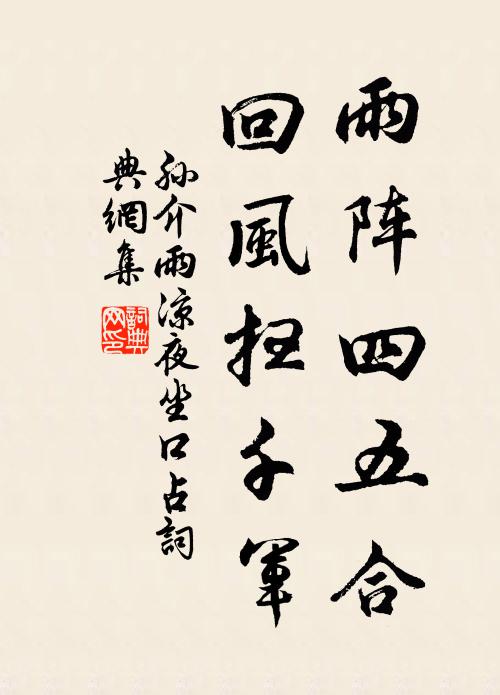 雨阵四五合
回風扫千軍
孙介雨凉夜坐口占詞
典網集
詞典网印